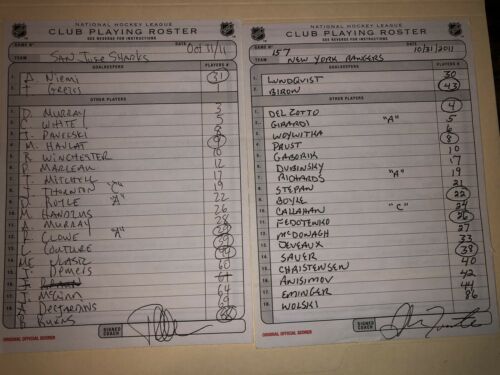 NATIONAL HOCKEY LEAGUE
CLUB PLAYING ROSTER
SEE REVERSE FOR INSTRUCTIONS
GAME Nº
DATE Oct 31/11
TEAM SAN JOSE SHARKS
GOALKEEPERS PLAYER #
A. NIEMI 31
T GREISS 1
OTHER PLAYERS
D. MURRAY 3
I. WHITE 5
J. PAVELSKI 8
M. HAVLAT 9
B. WINCHESTER 10
P MARLEAU 12
T. MITCHELL 17
J. THORNTON "C" 19
D BOYLE "A" 22
M. HANDZUS 26
A. MURRAY 28
R CLOWE "A" 29
L COUTURE 39
M. VLASIC 44
J. DEMERS 60
J. MCGINN 64
A. DESJARDINS 69
B BURNS 88
SIGNED COACH
ORIGINAL OFFICIAL SCORER
NATIONAL HOCKEY LEAGUE
CLUB PLAYING ROSTER
SEE REVERSE FOR INSTRUCTIONS
GAME Nº 157
DATE 10/31/2011
TEAM NEW YORK RANGERS
GOALKEEPERS PLAYER #
LUNDQVIST 30
BIRON 43
OTHER PLAYERS
DEL ZOTTO 4
GIRARDI "A" 5
WOYWITKA 6
PRUST 8
GABORIK 10
DUBINSKY 17
RICHARDS "A" 19
STEPAN 21
BOYLE 22
CALLAHAN "C" 24
FEDOTENKO 26
MCDONAGH 27
DEVEAUX 33
SAUER 38
CHRISTENSEN 40
ANISIMOV 42
EMINGER 44
WOLSKI 86
SIGNED COACH
ORIGINAL OFFICIAL SCORER